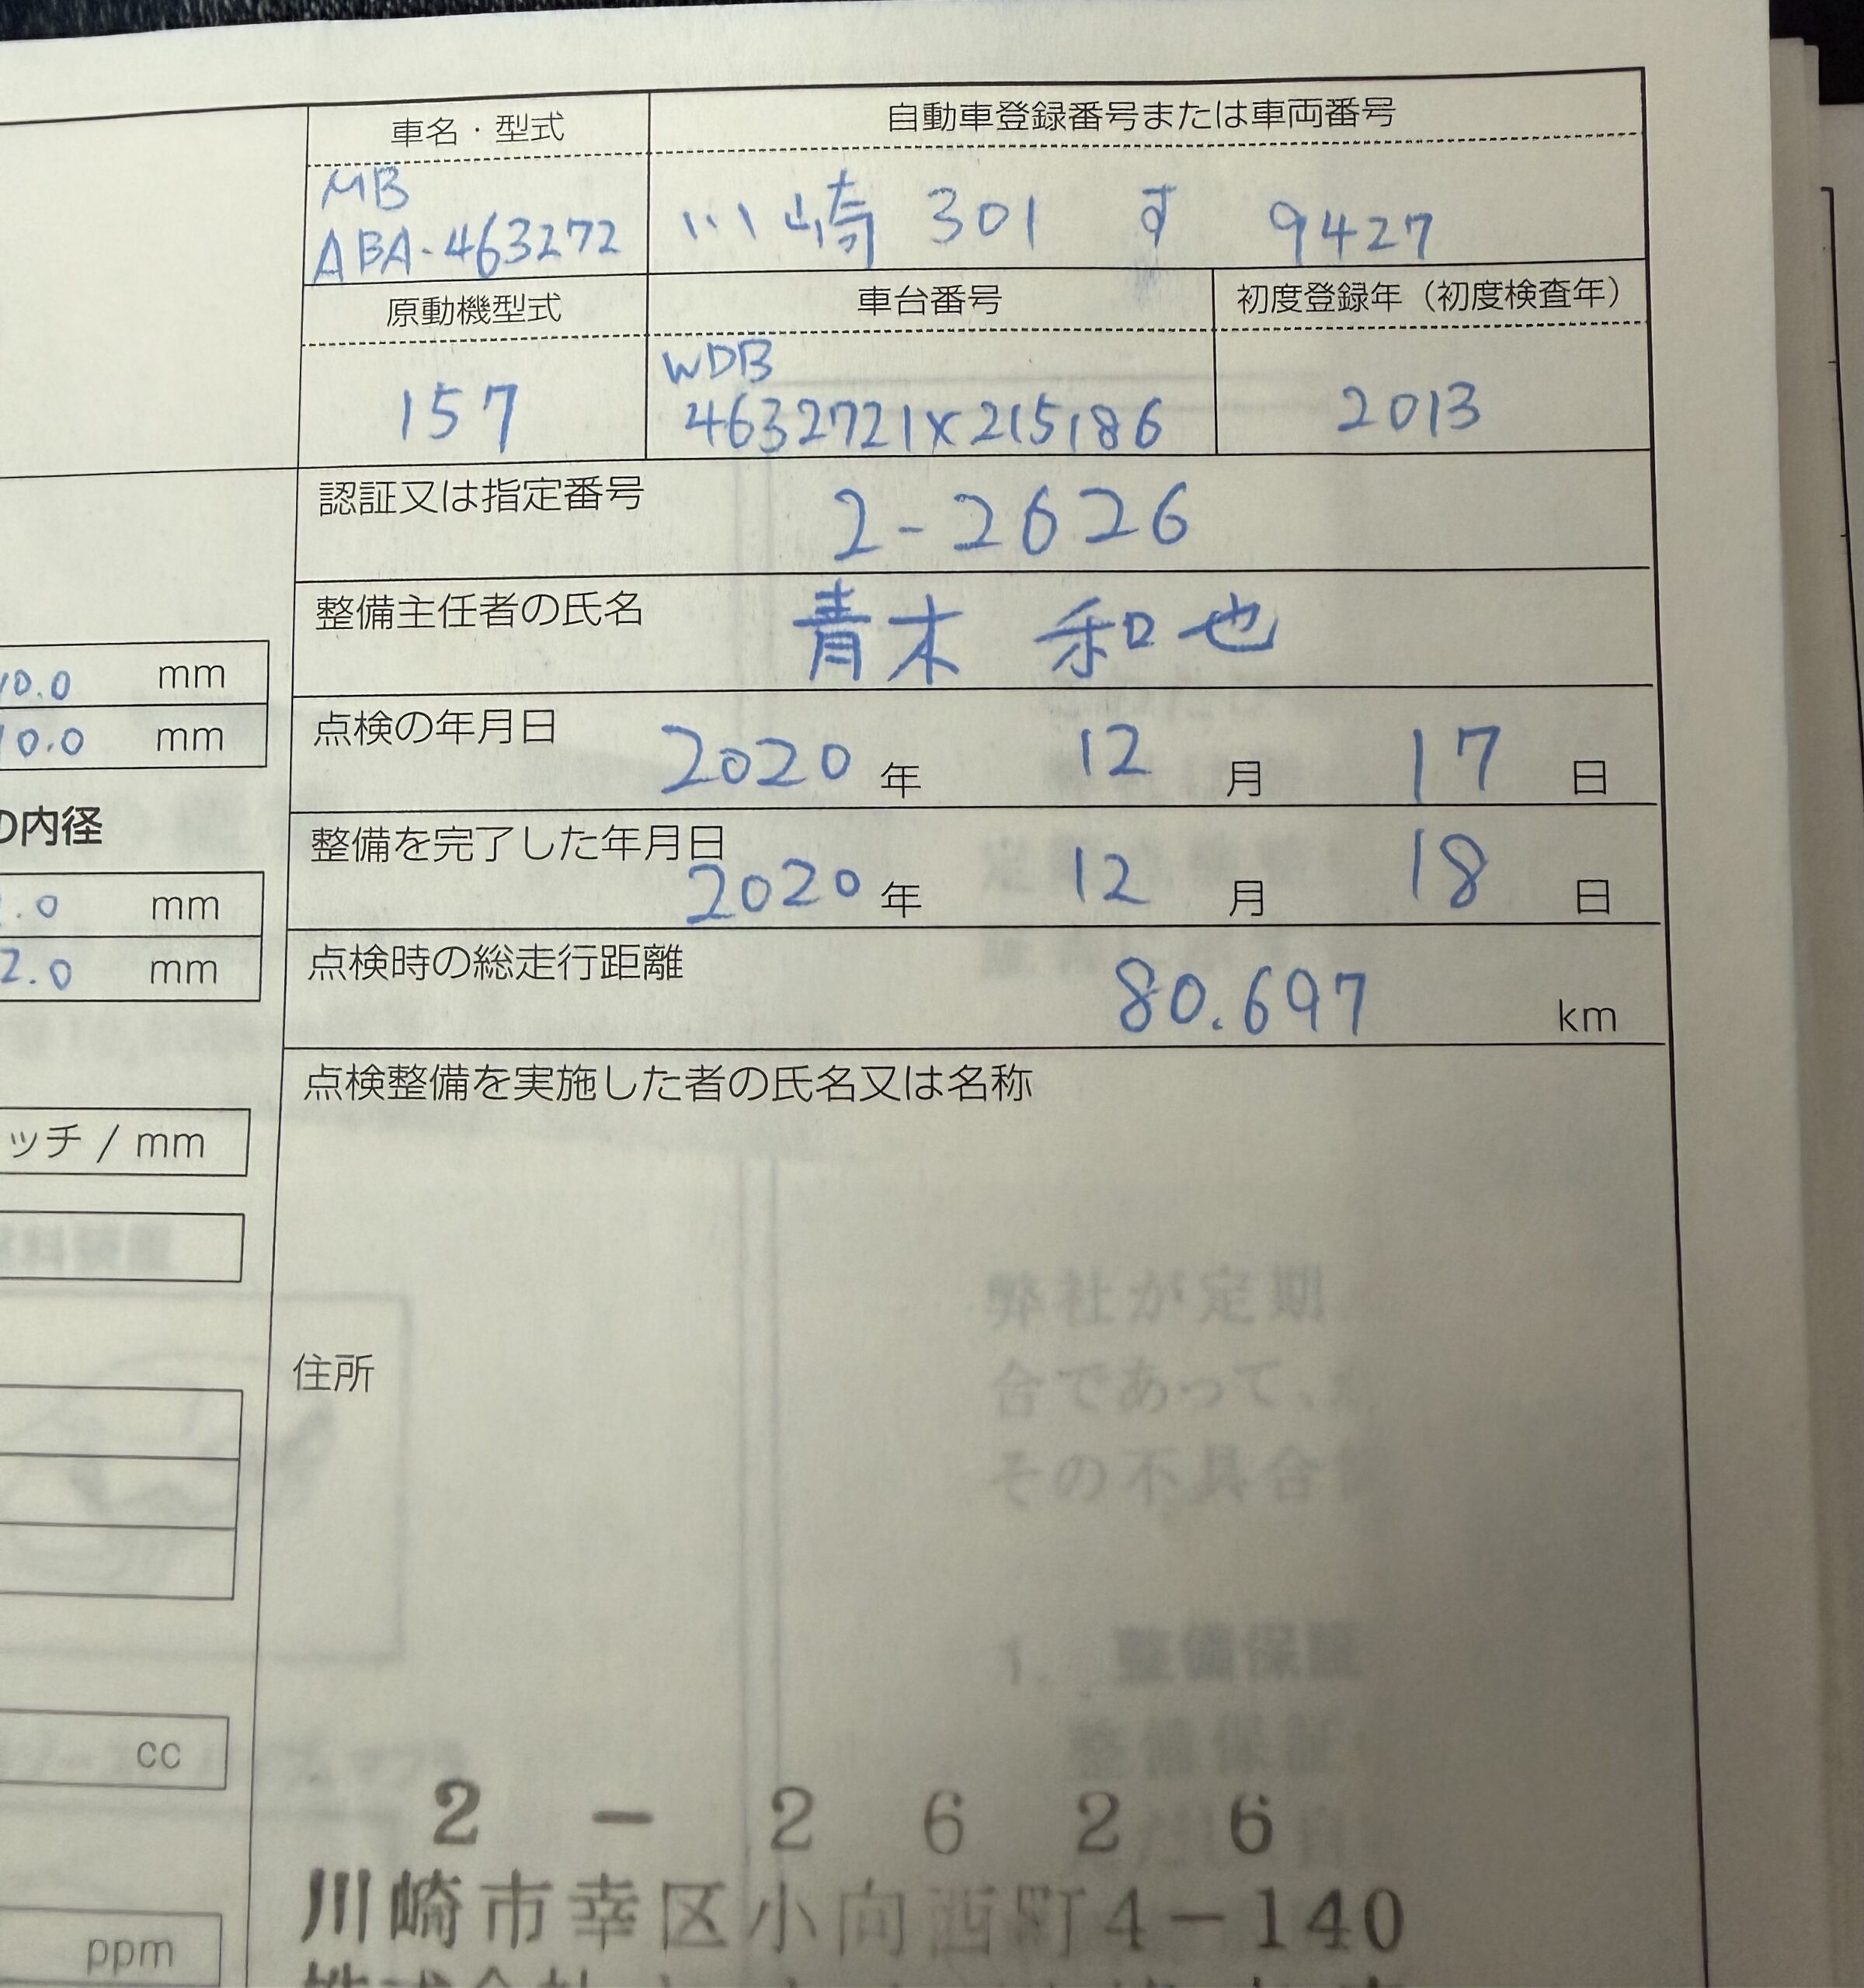 車名・型式
自動車登録番号または車両番号
MB
ABA-463272
川崎 301 す 9427
原動機型式
車台番号
初度登録年（初度検査年）
157
WDB
4632721X215186
2013
認証又は指定番号
2-2626
整備主任者の氏名
青木 和也
点検の年月日
2020年 12月 17日
整備を完了した年月日
2020年 12月 18日
点検時の総走行距離
80.697 km
点検整備を実施した者の氏名又は名称
住所
2-2626
川崎市幸区小向西町4-140
10.0 mm
10.0 mm
の内径
.0 mm
2.0 mm
ッチ / mm
cc
ppm
弊社が定期
合であって、
その不具合
1. 整備保証
整備保証